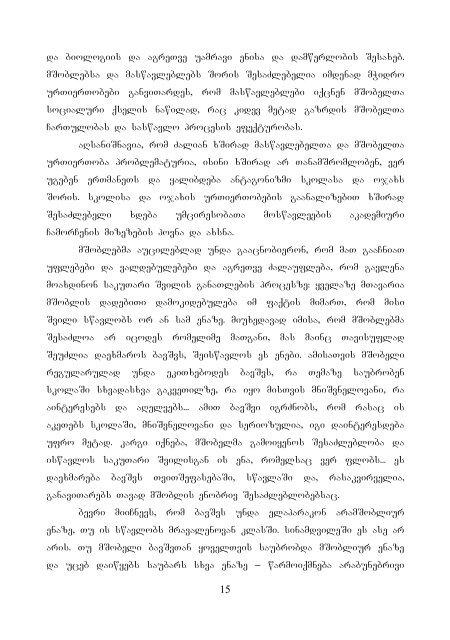 და ბიოლოგიის და აგრეთვე უამრავი ენისა და დამწერლობის შესახებ.
მშობლებსა და მასწავლებლებს შორის შესაძლებელია იმდენად მჭიდრო
ურთიერთობები განვითარდეს, რომ მასწავლებლები იქცნენ მშობელთა
სოციალური ქსელის ნაწილად, რაც კიდევ მეტად გაზრდის მშობელთა
ჩართულობას და სასწავლო პროცესის ეფექტურობას.
აღსანიშნავია, რომ ძალიან ხშირად მასწავლებელთა და მშობელთა
ურთიერთობა პრობლემატურია, ისინი ხშირად არ თანამშრომლობენ, ვერ
უგებენ ერთმანეთს და ყალიბდება ანტაგონიზმი სკოლასა და ოჯახს
შორის. სკოლისა და ოჯახის ურთიერთობების გაანალიზებით ხშირად
შესაძლებელი ხდება უმცირესობათა მოსწავლეების აკადემიური
ჩამორჩენის მიზეზების პოვნა და ახსნა.
მშობლებმა აუცილებლად უნდა გააცნობიერონ, რომ მათ გააჩნიათ
უფლებები და ვალდებულებები და აგრეთვე ძალაუფლება, რომ გავლენა
მოახდინონ საკუთარი შვილის განათლების პროცესზე: ყველაზე მთავარია
მშობლის დადებითი დამოკიდებულება იმ ფაქტის მიმართ, რომ მისი
შვილი სწავლობს ორ ან სამ ენაზე. მიუხედავად იმისა, რომ მშობლებმა
შესაძლოა არ იცოდეს რომელიმე მათგანი, მას მაინც თავისუფლად
შეუძლია დაეხმაროს ბავშვს, შეისწავლოს ეს ენები. ამისათვის მშობელი
რეგულარულად უნდა ეკითხებოდეს ბავშვს, რა თემაზე საუბრობენ
სკოლაში სხვადასხვა გაკვეთილზე, რა იყო მისთვის მნიშვნელოვანი, რა
აინტერესებს და აღელვებს... ამით ბავშვი იგრძნობს, რომ რასაც ის
აკეთებს სკოლაში, მნიშვნელოვანი და სერიოზულია, იგი დაინტერესდება
უფრო მეტად. კარგი იქნება, მშობელმა გამოიყენოს შესაძლებლობა და
ისწავლოს საკუთარი შვილისგან ის ენა, რომელსაც ვერ ფლობს... ეს
დაეხმარება ბავშვს თვითშეფასებაში, სწავლაში და, რასაკვირველია,
განავითარებს თავად მშობლის ენობრივ შესაძლებლობებსაც.
ბევრი მიიჩნევს, რომ ბავშვს უნდა ელაპარაკონ არამშობლიურ
ენაზე, თუ ის სწავლობს მრავალენოვან კლასში. სინამდვილეში ეს ასე არ
არის. თუ მშობელი ბავშვთან ყოველთვის საუბრობდა მშობლიურ ენაზე
და უცებ დაიწყებს საუბარს სხვა ენაზე – წარმოიქმნება არაბუნებრივი
15